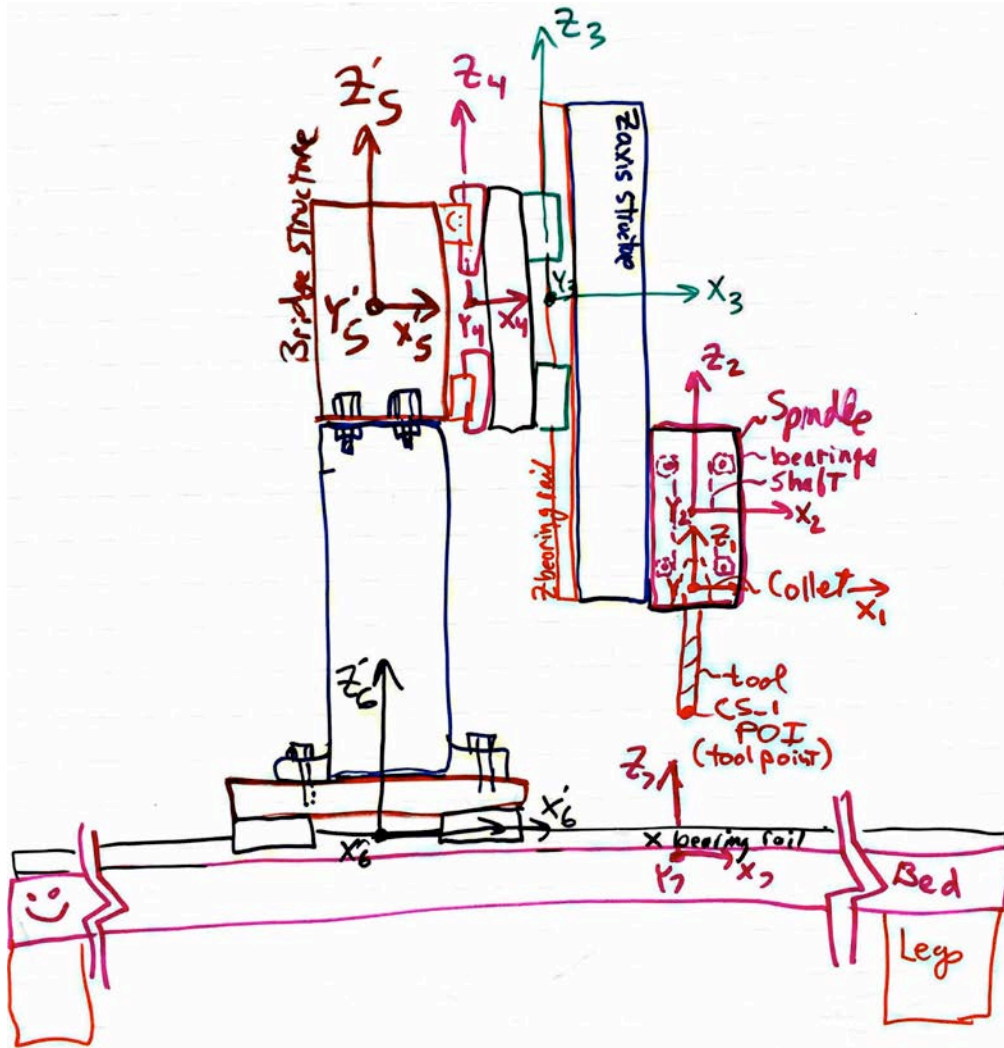 Z3
Z4
Z'5
Bridge structure
Z axis structure
Y'5
X'5
Y4
X4
Y3
X3
Z2
Spindle
bearings
shaft
Y2
X2
Z1
Collet
X1
Z bearing rail
tool
CS-1
POI
(tool point)
Z'6
X'6
Z7
X bearing rail
Y7
X7
Bed
Legs